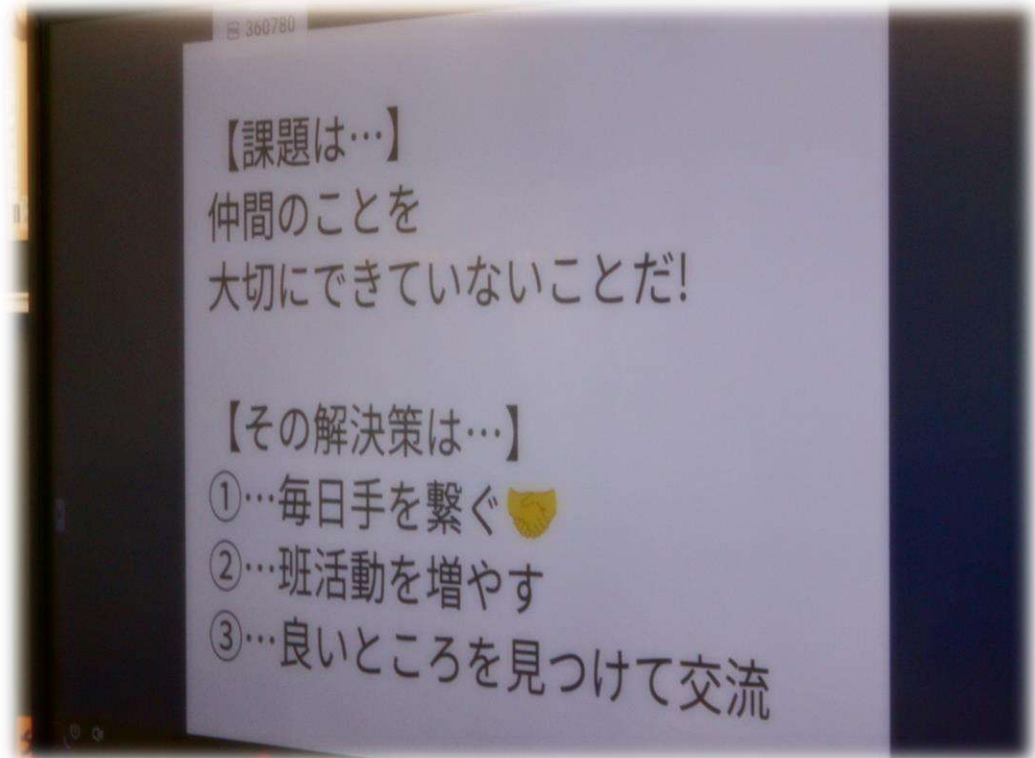 360780
【課題は…】
仲間のことを
大切にできていないことだ!
【その解決策は…】
①…毎日手を繋ぐ🤝
②…班活動を増やす
③…良いところを見つけて交流